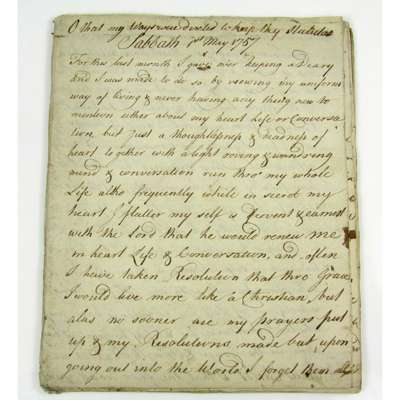 O that my Ways were directed to keep thy Statutes
Sabbath 1st May 1757
For this last month I gave over keeping a Deary
and I was made to do so by viewing my uniform
way of living & never having any thing new to
mention either about my heart Life or Conversa
tion but just a thoughtlessness & deadness of
heart together with a light roving & wandring
mind & conversation run thro' my whole
Life altho frequently while in secret my
heart I flutter my self is fervent & earnest
with the Lord that he would renew me
in heart Life & Conversation, and often
I have taken Resolution that thro Grace
I would live more like a Christian, but
alas no sooner are my prayers put
up & my Resolutions made but upon
going out into the World I forget them